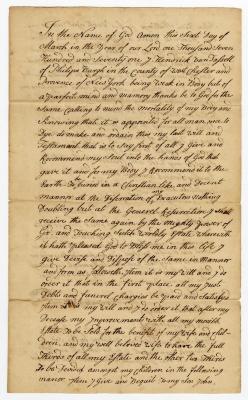 In the Name of God Amen this first Day of
March in the Year of our Lord one Thousand Seven
Hundred and Seventy one I Hendrick Van Tassell
of Philips Burgh in the County of West Chester and
Province of New York being weak in Body but of
a Perfect mind and mamory thanks be to God for the
Same Calling to mind the mortality of my Body and
Knowing that it is appointed for all men once to
Dye do make and ordain this my last will and
Testament that is to Say first of all I Give and
Recommend my Soul into the hands of God that
gave it and for my Body I Recommend it to the
Earth to be buried in a Christian like and Decent
manner at the Discration of my Executors nothing
Doubting but at the General Resurrection I shall
receive the Same again by the Mighty Power of
God and Touching Such Worldly Estate wherewith
it hath pleased God to bless me in this Life I
give Devise and Dispose of the Same in Manner
and form as followeth Item it is my will and I do
order it that in the first place all my Just
Debts and funeral Charges be paid and Satisfied
Item it is my will and I do order it that after my
Decease my Improvement with all my movable
Estate to be Sold for the benefit of my Wife and Chil-
dren, and my well beloved Wife to have the full
Thirds of all my Estate and the other two Thirds
to be Divided amongst my Children in the following
manor Item I Give and Bequeth to my Son John